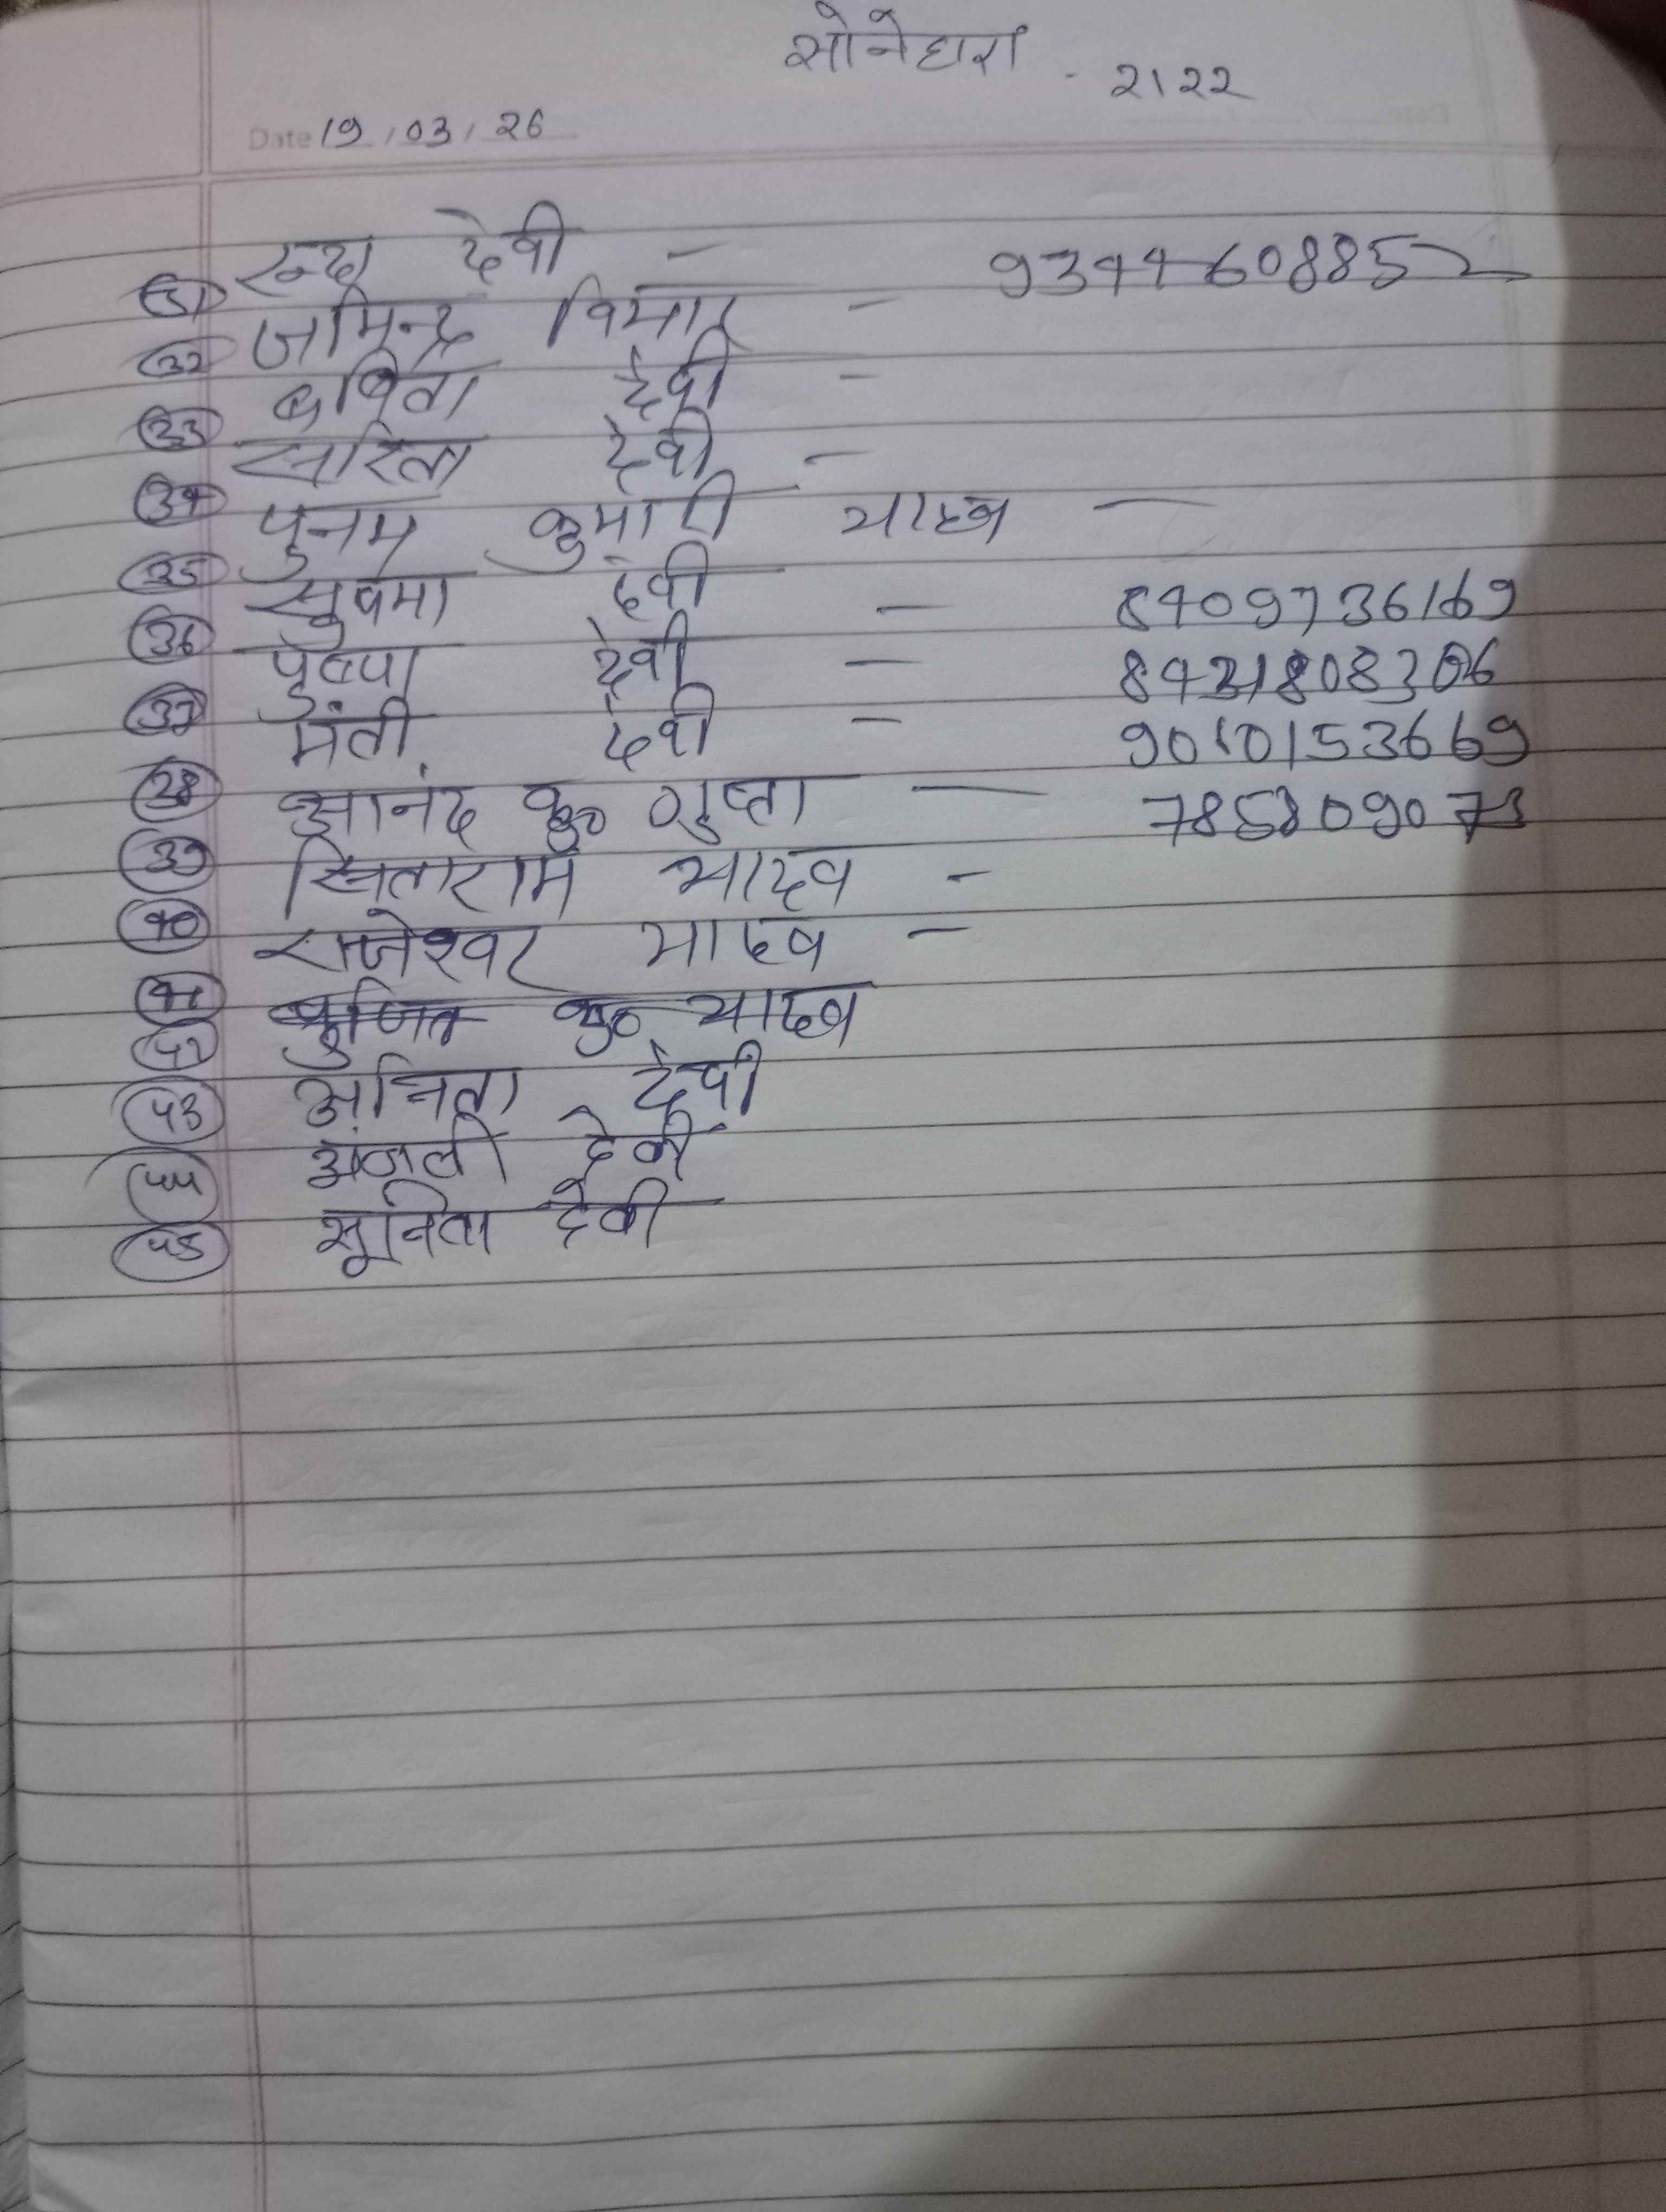 सोनेधारा - 2122
Date 19/03/26
31 रून्दा देवी -
32 जमिन्द्र विमार - 9344608852
33 बबिता देवी -
34 सरिता देवी -
35 पुनम कुमारी यादव -
36 सुषमा देवी - 8409736169
37 पुष्पा देवी -
38 मंती देवी - 9010153669
39 आनंद कु० गुप्ता -
40 सिताराम यादव -
41 राजेश्वर यादव -
कु० यादव
43 अनिता देवी
44 अंजली देवी
45 सुनिता देवी